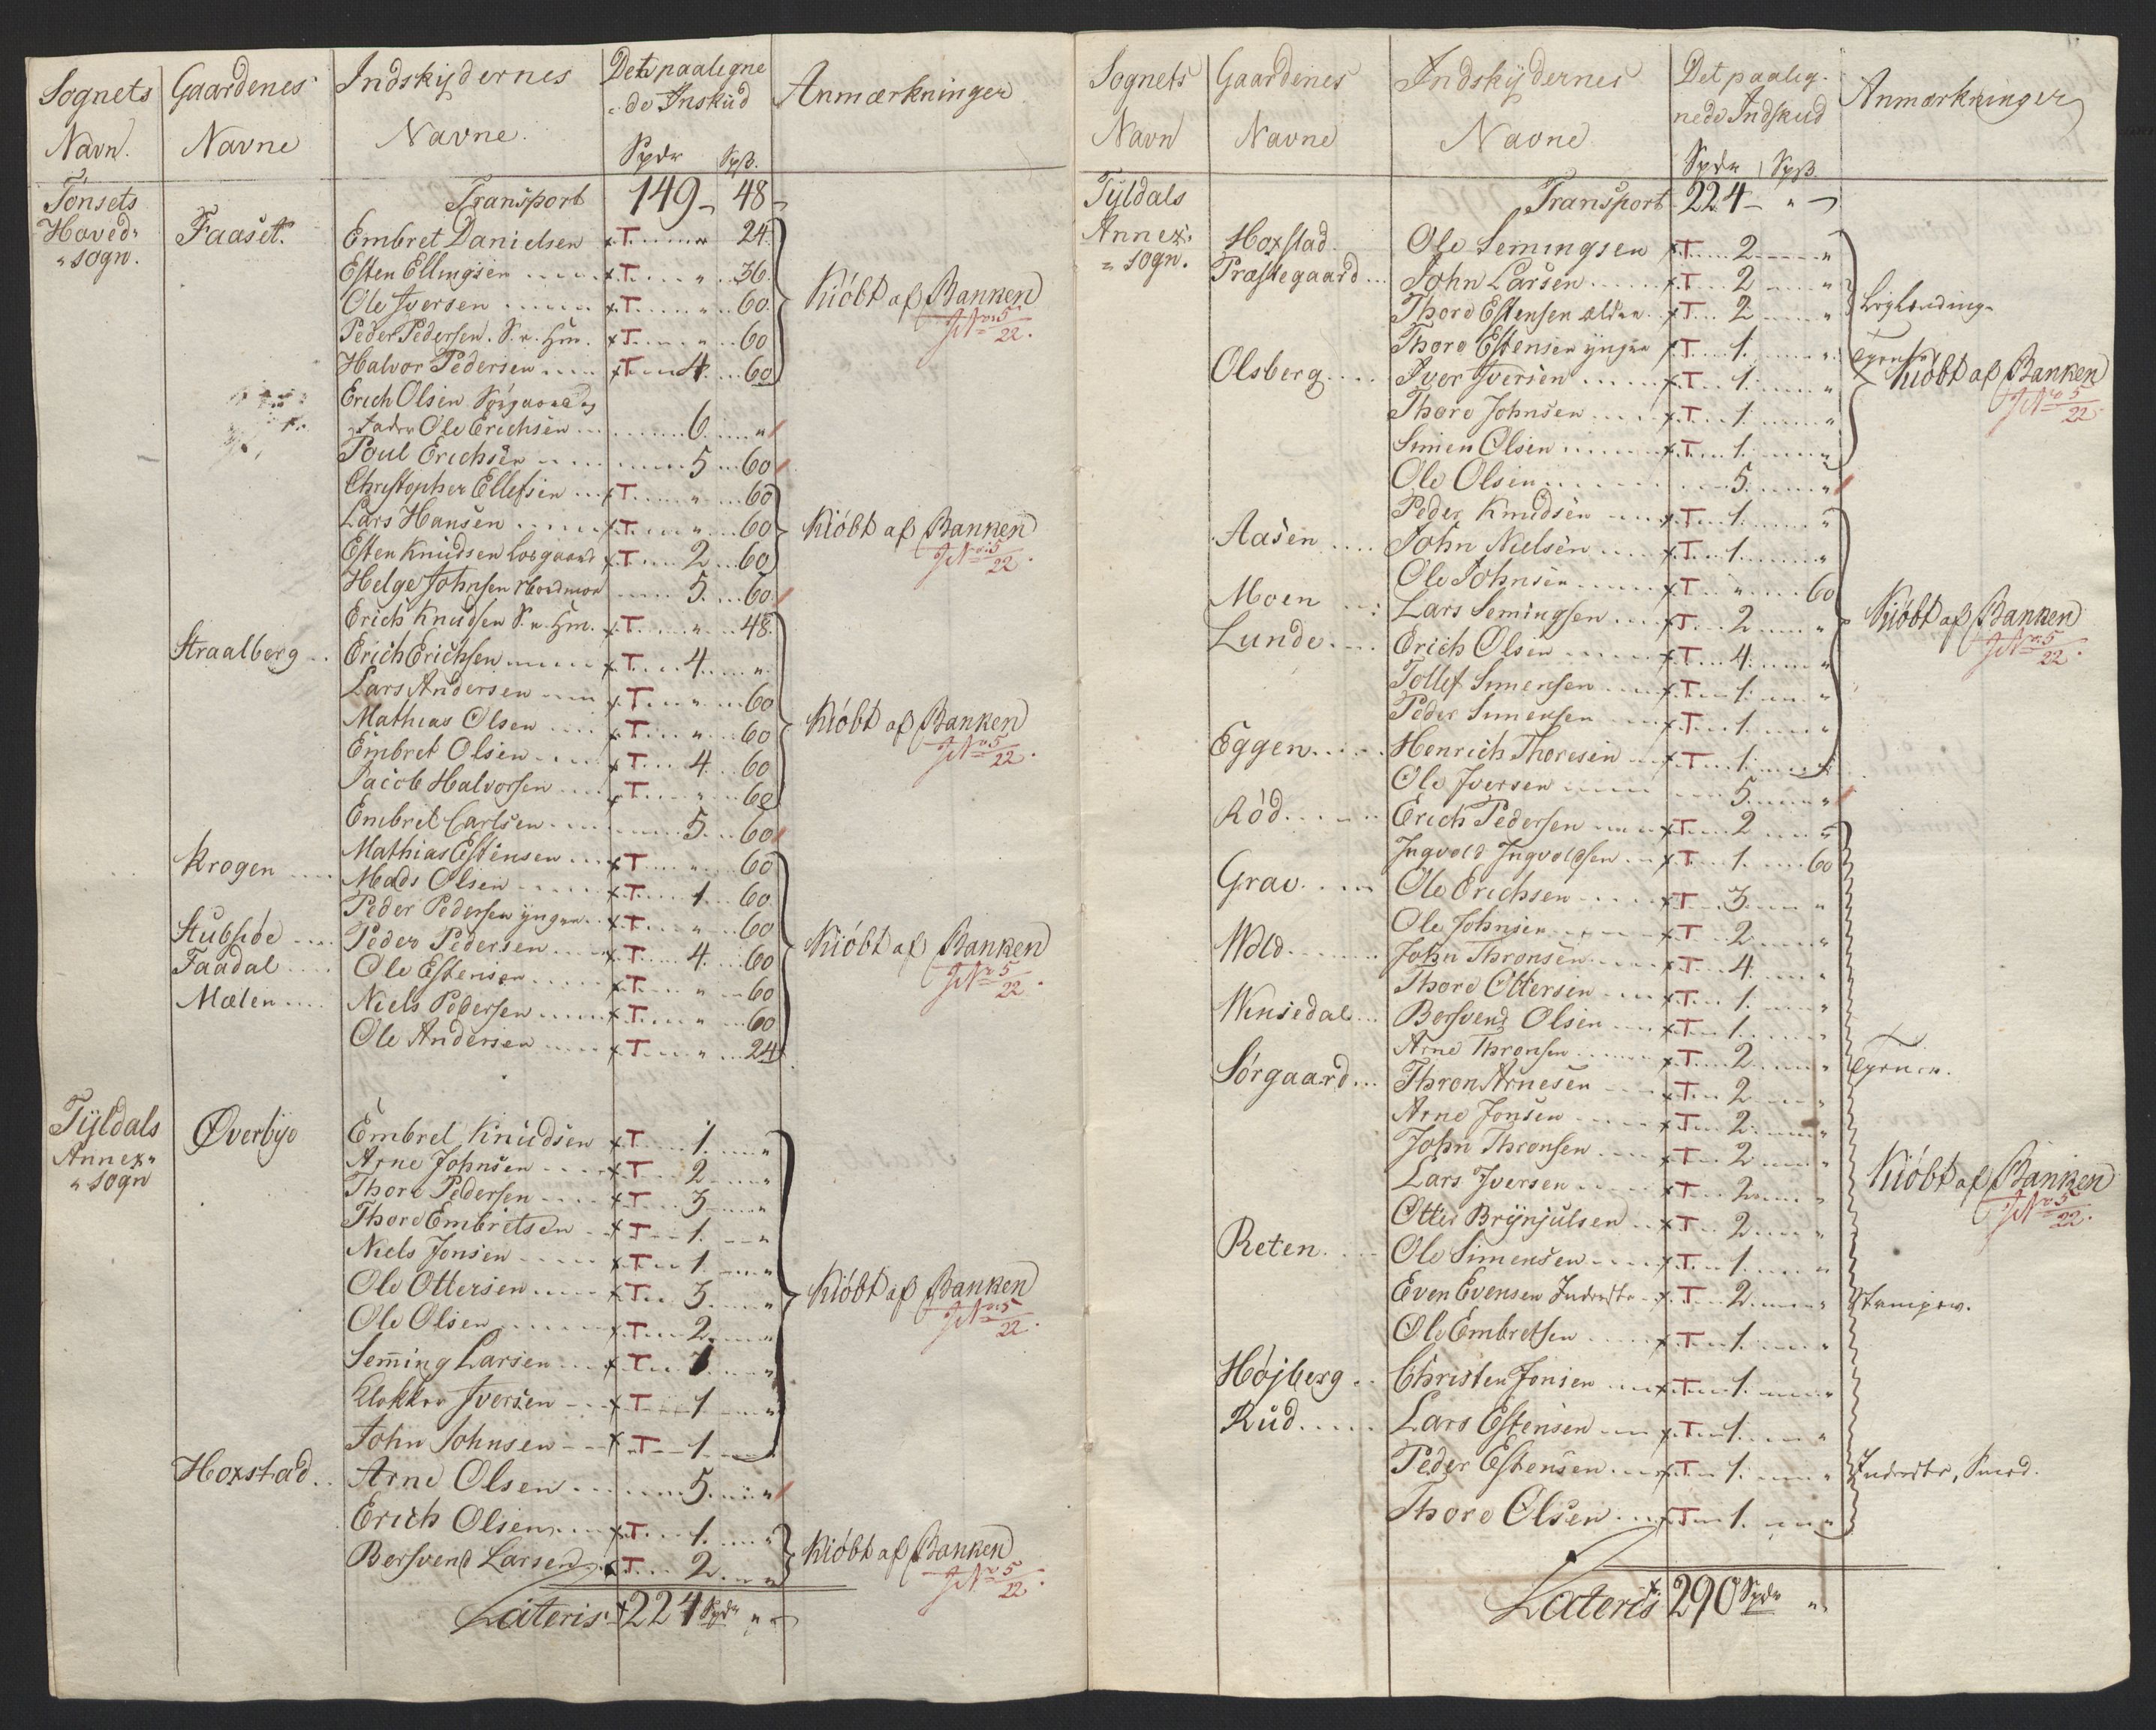 Sognets Gaardenes Indskydernes Det paaligne Anmærkninger
Navn. Navne Navne. de Inskud
Spdr Spß.
Tønsets Transport 149 48
Hoved-
sogn. Faaset. Embret Danielsen x T " 24
Esten Ellingsen x T " 36
Ole Iversen x T " 60 Kiöbt af Banken No 5/22.
Peder Pedersen. S. v. Hm. x T " 60
Halvor Pedersen x T 4 60
Erich Olsen Sörgaard og
Fader Ole Erichsen 6 "
Poul Erichsen 5 60
Christopher Ellefsen x T " 60
Lars Hansen x T " 60 Kiöbt af Banken No 5/22.
Esten Knudsen Loegaard x T 2 60
Helge Johnsen 5 60
Erich Knudsen S. v. Hm. x T " 48
Straalberg Erich Erichsen x T 4 "
Lars Andersen x T " 60
Mathias Olsen x T " 60 Kiöbt af Banken No 5/22.
Embret Olsen x T 4 60
Jacob Halvorsen x T " 60
Embret Carlsen 5 60
Mathias Estensen x T " 60
Krogen Mads Olsen x T 1 60
Peder Pedersen yngre x T " 60
Stubsöe Peder Pedersen x T 4 60 Kiöbt af Banken No 5/22.
Faadal Ole Estensen x T " 60
Mælen Niels Pedersen x T " 60
Ole Andersen x T " 24
Tyldals Øverbye Embret Knudsen x T 1. "
Annex- Arne Johnsen x T 2 "
sogn Thore Pedersen x T 3 "
Thore Embretsen x T 1. "
Niels Jonsen x T 1 "
Ole Ottersen x T 3 " Kiöbt af Banken No 5/22.
Ole Olsen x T 2 "
Semming Larsen x T 1 "
Klokker Iversen x T 1 "
John Johnsen x T 1 "
Hoxstad Arne Olsen 5 "
Erich Olsen x T 1. " Kiöbt af Banken No 5/22.
Bersvend Larsen x T 2 "
Lateris x 224 Spdr "
Sognets Gaardenes Indskydernes Det paalig- Anmærkninger
Navn Navne Navne nede Indskud
Spdr Spß
Tyldals Transport 224 "
Annex- Hoxstad Ole Semingsen x T 2 "
sogn. Præstegaard John Larsen x T 2 "
Thore Estensen ældre x T 2 "
Thore Estensen yngre x T 1. "
Olsberg Iver Iversen x T 1. " Kiöbt af Banken No 5/22.
Thore Johnsen x T 1. "
Simen Olsen x T 1. "
Ole Olsen 5 "
Peder Knudsen x T 1. "
Aasen John Nielsen x T 1. "
Ole Johnsen x T " 60
Moen Lars Semingsen x T 2 " Kiöbt af Banken No 5/22.
Lunde Erich Olsen x T 4. "
Tollef Simensen x T 1. "
Peder Simensen x T 1. "
Eggen Henrich Thoresen x T 1. "
Ole Iversen 5 "
Röd Erich Pedersen x T 2 "
Ingvold Ingvoldsen x T 1. 60
Grav Ole Erichsen x T 3 "
Ole Johnsen x T 2 "
Wold John Thronsen x T 4 "
Thore Ottersen x T 1. "
Winsedal Bersvend Olsen x T 1. "
Arne Thronsen x T 2 "
Sörgaard Thron Arnesen x T 2 "
Arne Jonsen x T 2 "
John Thronsen x T 2 "
Lars Iversen x T 2 " Kiöbt af Banken No 5/22.
Otter Brynjulsen x T 2 "
Reten Ole Simensen x T 1. "
Even Evensen Inderste x T 2 "
Ole Embretsen x T 1. "
Höjberg Christen Jonsen x T 1. "
Rud Lars Estensen x T 1. "
Peder Estensen x T 1. " Inderste, Smed.
Thore Olsen x T 1. "
Lateris x 290 Spdr "